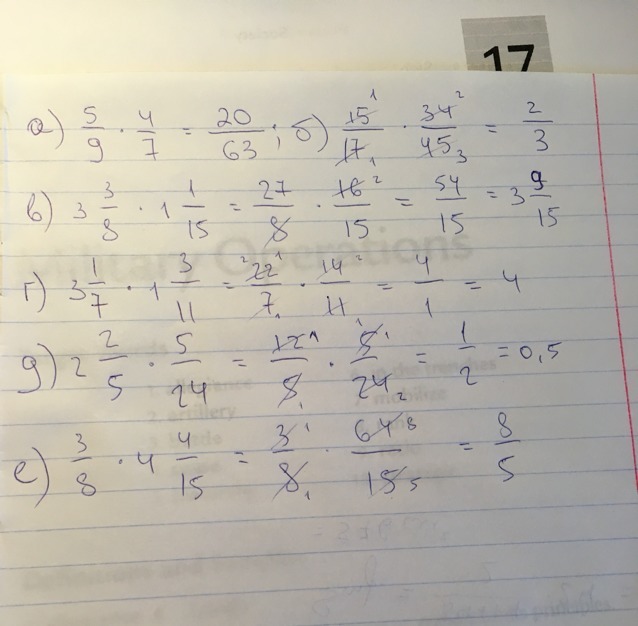 17
а) 5/9 · 4/7 = 20/63; б) 15¹/17₁ · 34²/45₃ = 2/3
в) 3 3/8 · 1 1/15 = 27/8 · 16²/15 = 54/15 = 3 9/15
г) 3 1/7 · 1 3/11 = ²22¹/7₁ · 14²/11 = 4/1 = 4
д) 2 2/5 · 5/24 = 12¹/5₁ · ¹5¹/24₂ = 1/2 = 0,5
е) 3/8 · 4 4/15 = 3¹/8₁ · 64⁸/15₅ = 8/5